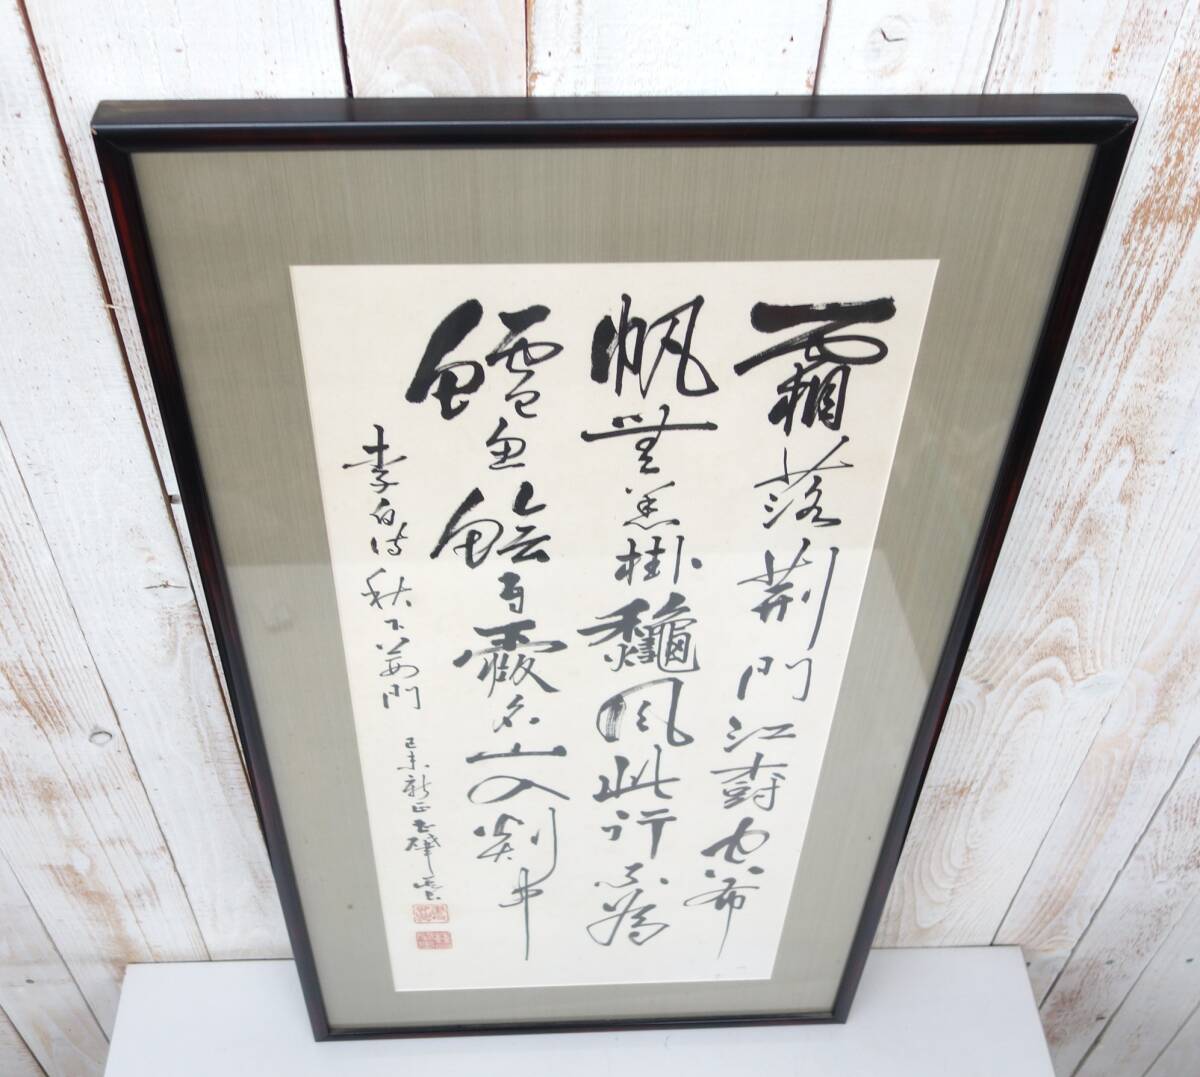 霜落荊門江樹空布
帆無恙掛龝風此行不為
鱸魚鱠自愛名山入剡中
李白詩秋下荊門
己未新正